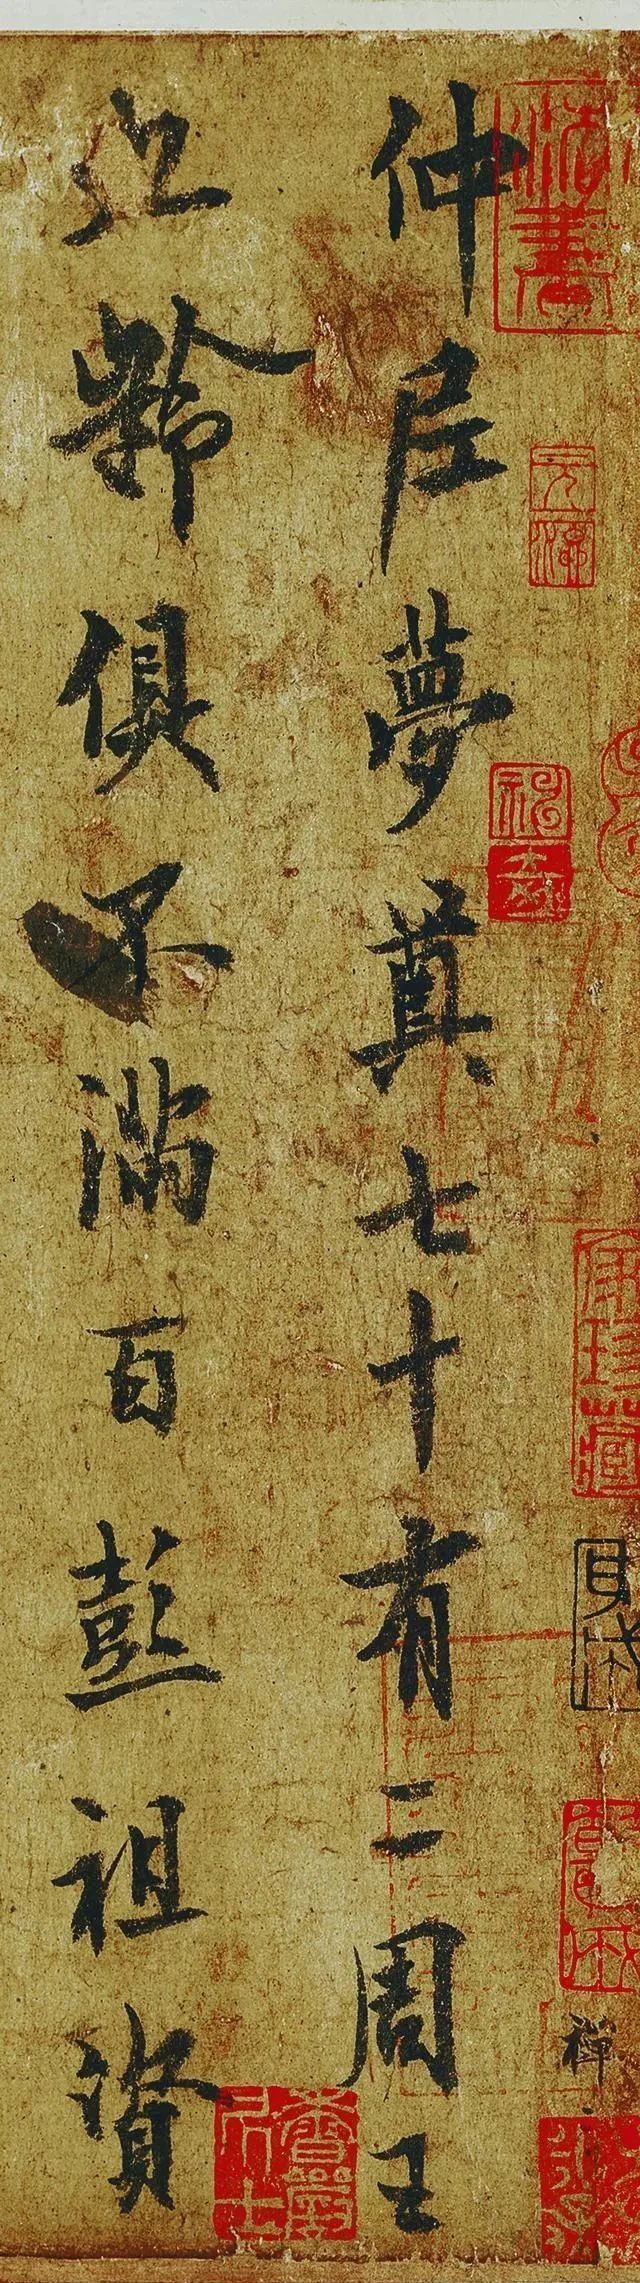 仲尼夢奠七十有二周王
九齡俱不滿百彭祖資
法書
珍藏